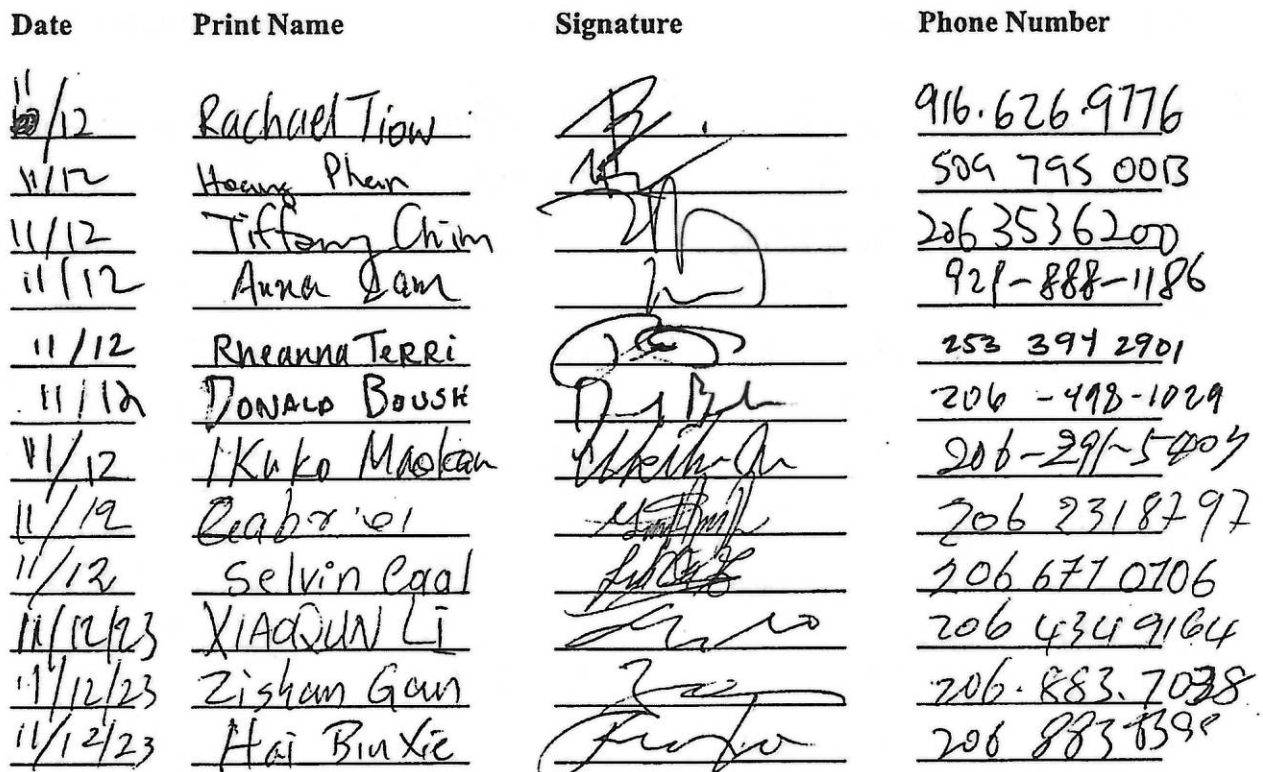 Date Print Name Signature Phone Number
11/12 Rachael Tiow 916.626.9776
11/12 Hoang Phan 509 795 0013
11/12 Tiffany Chim 206 353 6200
11/12 Anna Lam 
11/12 Rheanna TERRI 253 394 2901
11/12 DONALD BOUSH 206-498-1029
11/12 IKuko
11/12 206 231 8797
11/12 Selvin Caal 206 677 0706
11/12/23 XIAOQUN LI 206 434 9164
11/12/23 Zishan Gan 206.883.7038
11/12/23 Hai Bin Xie 206 883